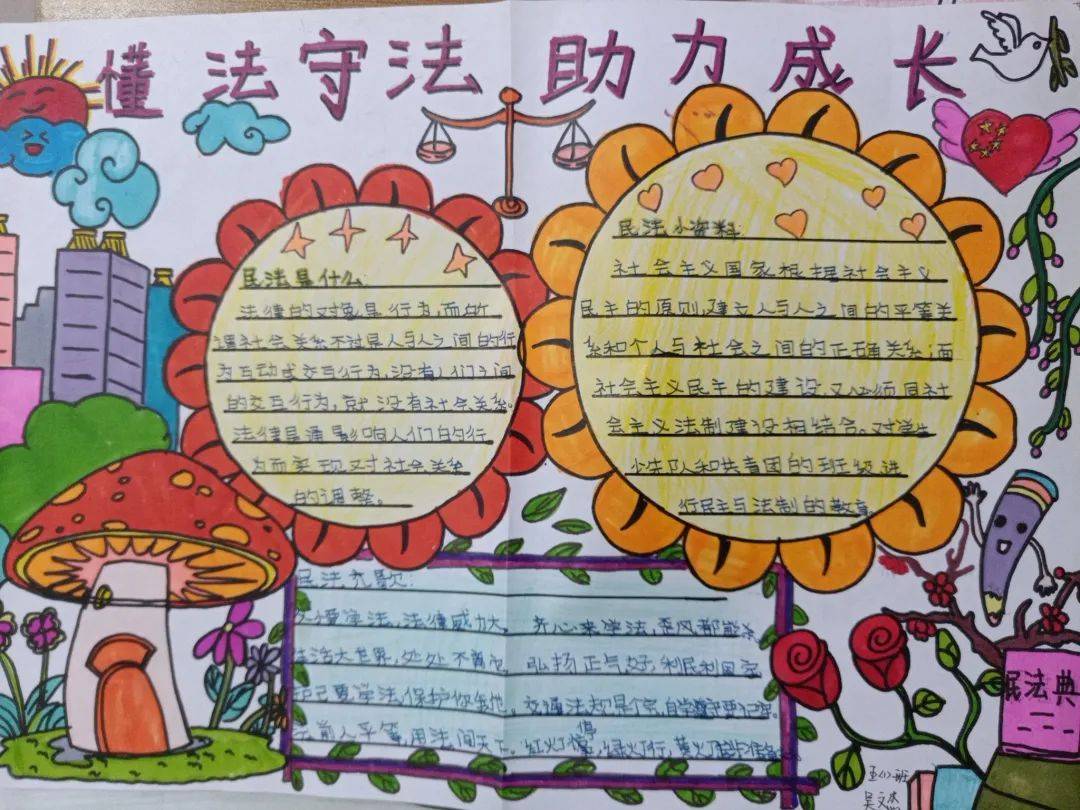 懂法守法 助力成长
民法是什么:
法律的对象是行为,而所
谓社会关系不过是人与人之间的行
为互动或交互行为,没有人们之间
的交互行为,就没有社会关系。
法律是通影响人们的行
为而实现对社会关系
的调整。
民法小资料:
社会主义国家根据社会主义
民主的原则,建立人与人之间的平等关
系和个人与社会之间的正确关系;而
社会主义民主的建设,又必须同社
会主义法制建设相结合。对学生
少年队和共青团的班级进
行民主与法制的教育。
民法六歌:
学法,法律威力大。齐心来学法,歪风都
生活大世界,处处不离。弘扬正气好,利民利国家
要学法,保护你我他。交通法规是个宝,自学遵守要记牢。
前人平等,用法问天下。红灯停,绿灯行,黄灯准备
民法典
五(1)班
吴文杰